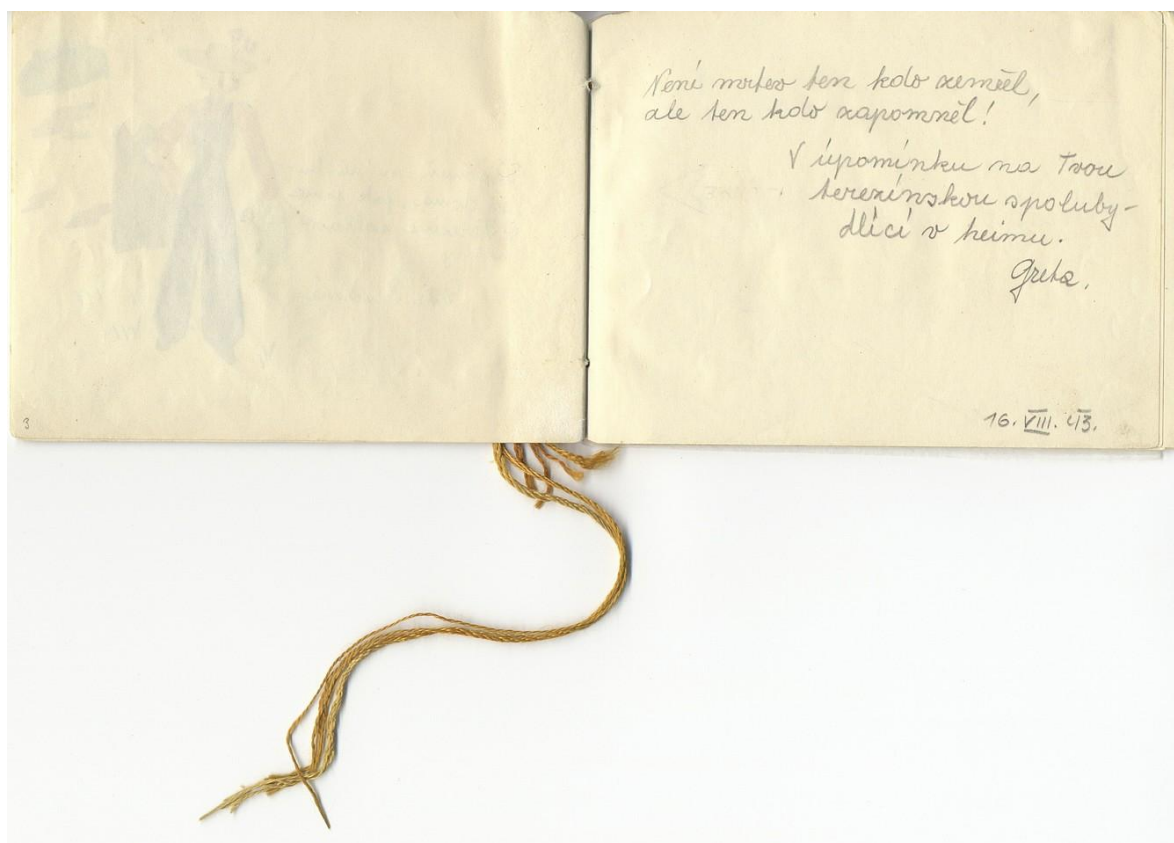 3
Není mrtev ten kdo zemřel,
ale ten kdo zapomněl!
V úpomínku na Tvou
terezínskou spoluby-
dlící v heimu.
Greta.
16. VIII. 43.